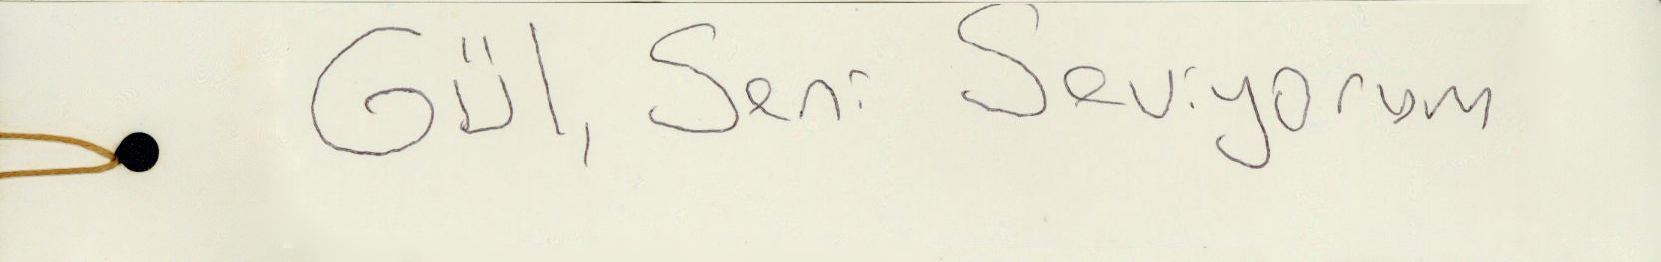 Gül, Seni Seviyorum